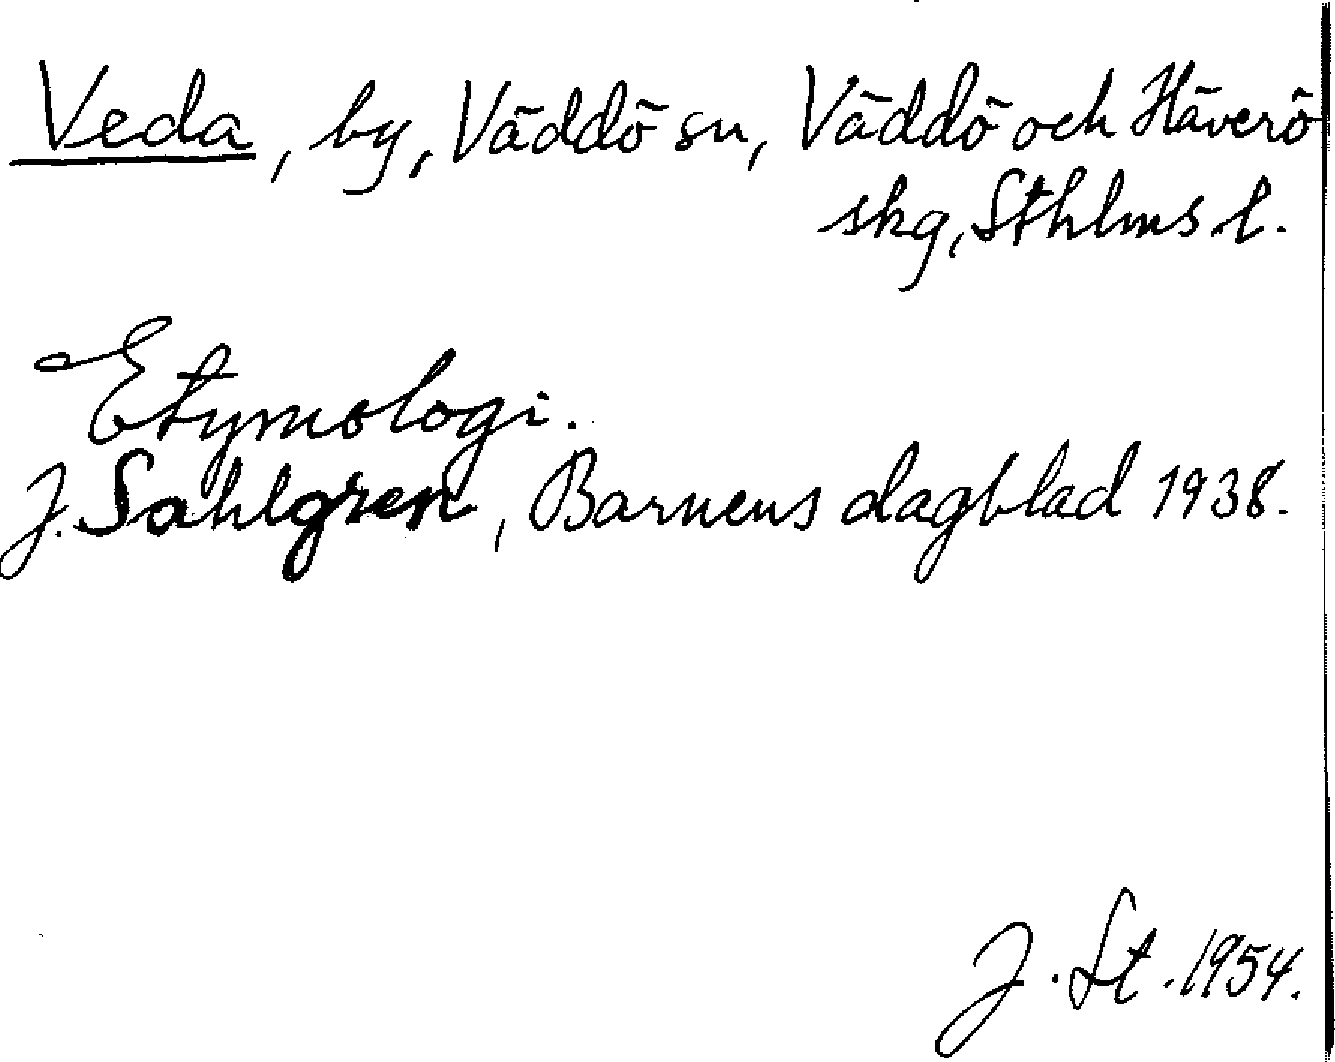 Veda, by, Väddö sn, Väddö och Häverö
skg, Sthlms l.
Etymologi.
J. Sahlgren, Barnens dagblad 1938.
J. St. 1954.